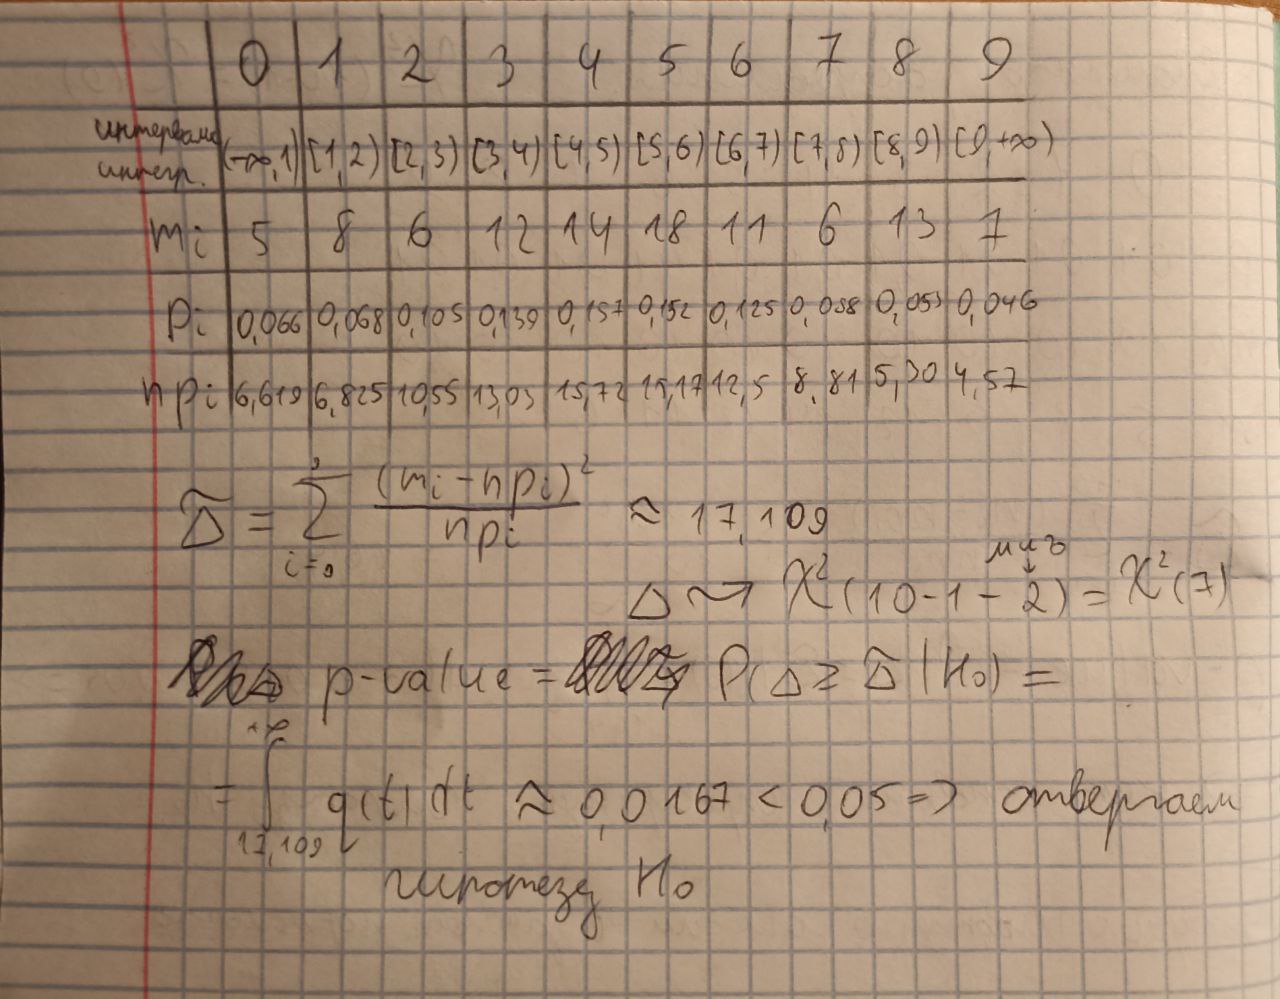 0 1 2 3 4 5 6 7 8 9
интервалы (-∞,1) [1,2) [2,3) [3,4) [4,5) [5,6) [6,7) [7,8) [8,9) [9,+∞)
интегр.
mi 5 8 6 12 14 18 11 6 13 7
pi 0,066 0,068 0,105 0,139 0,157 0,152 0,125 0,088 0,053 0,046
npi 6,619 6,825 10,55 13,03 15,72 15,17 12,5 8,81 5,30 4,57
Δ̃ = Σ_{i=0}^{9} (mi - npi)² / npi ≈ 17,109
Δ ⇝ χ²(10-1-2) = χ²(7)
p-value = P(Δ ≥ Δ̃ | H₀) =
= ∫_{17,109}^{+∞} q(t) dt ≈ 0,0167 < 0,05 => отвергаем
гипотезу H₀